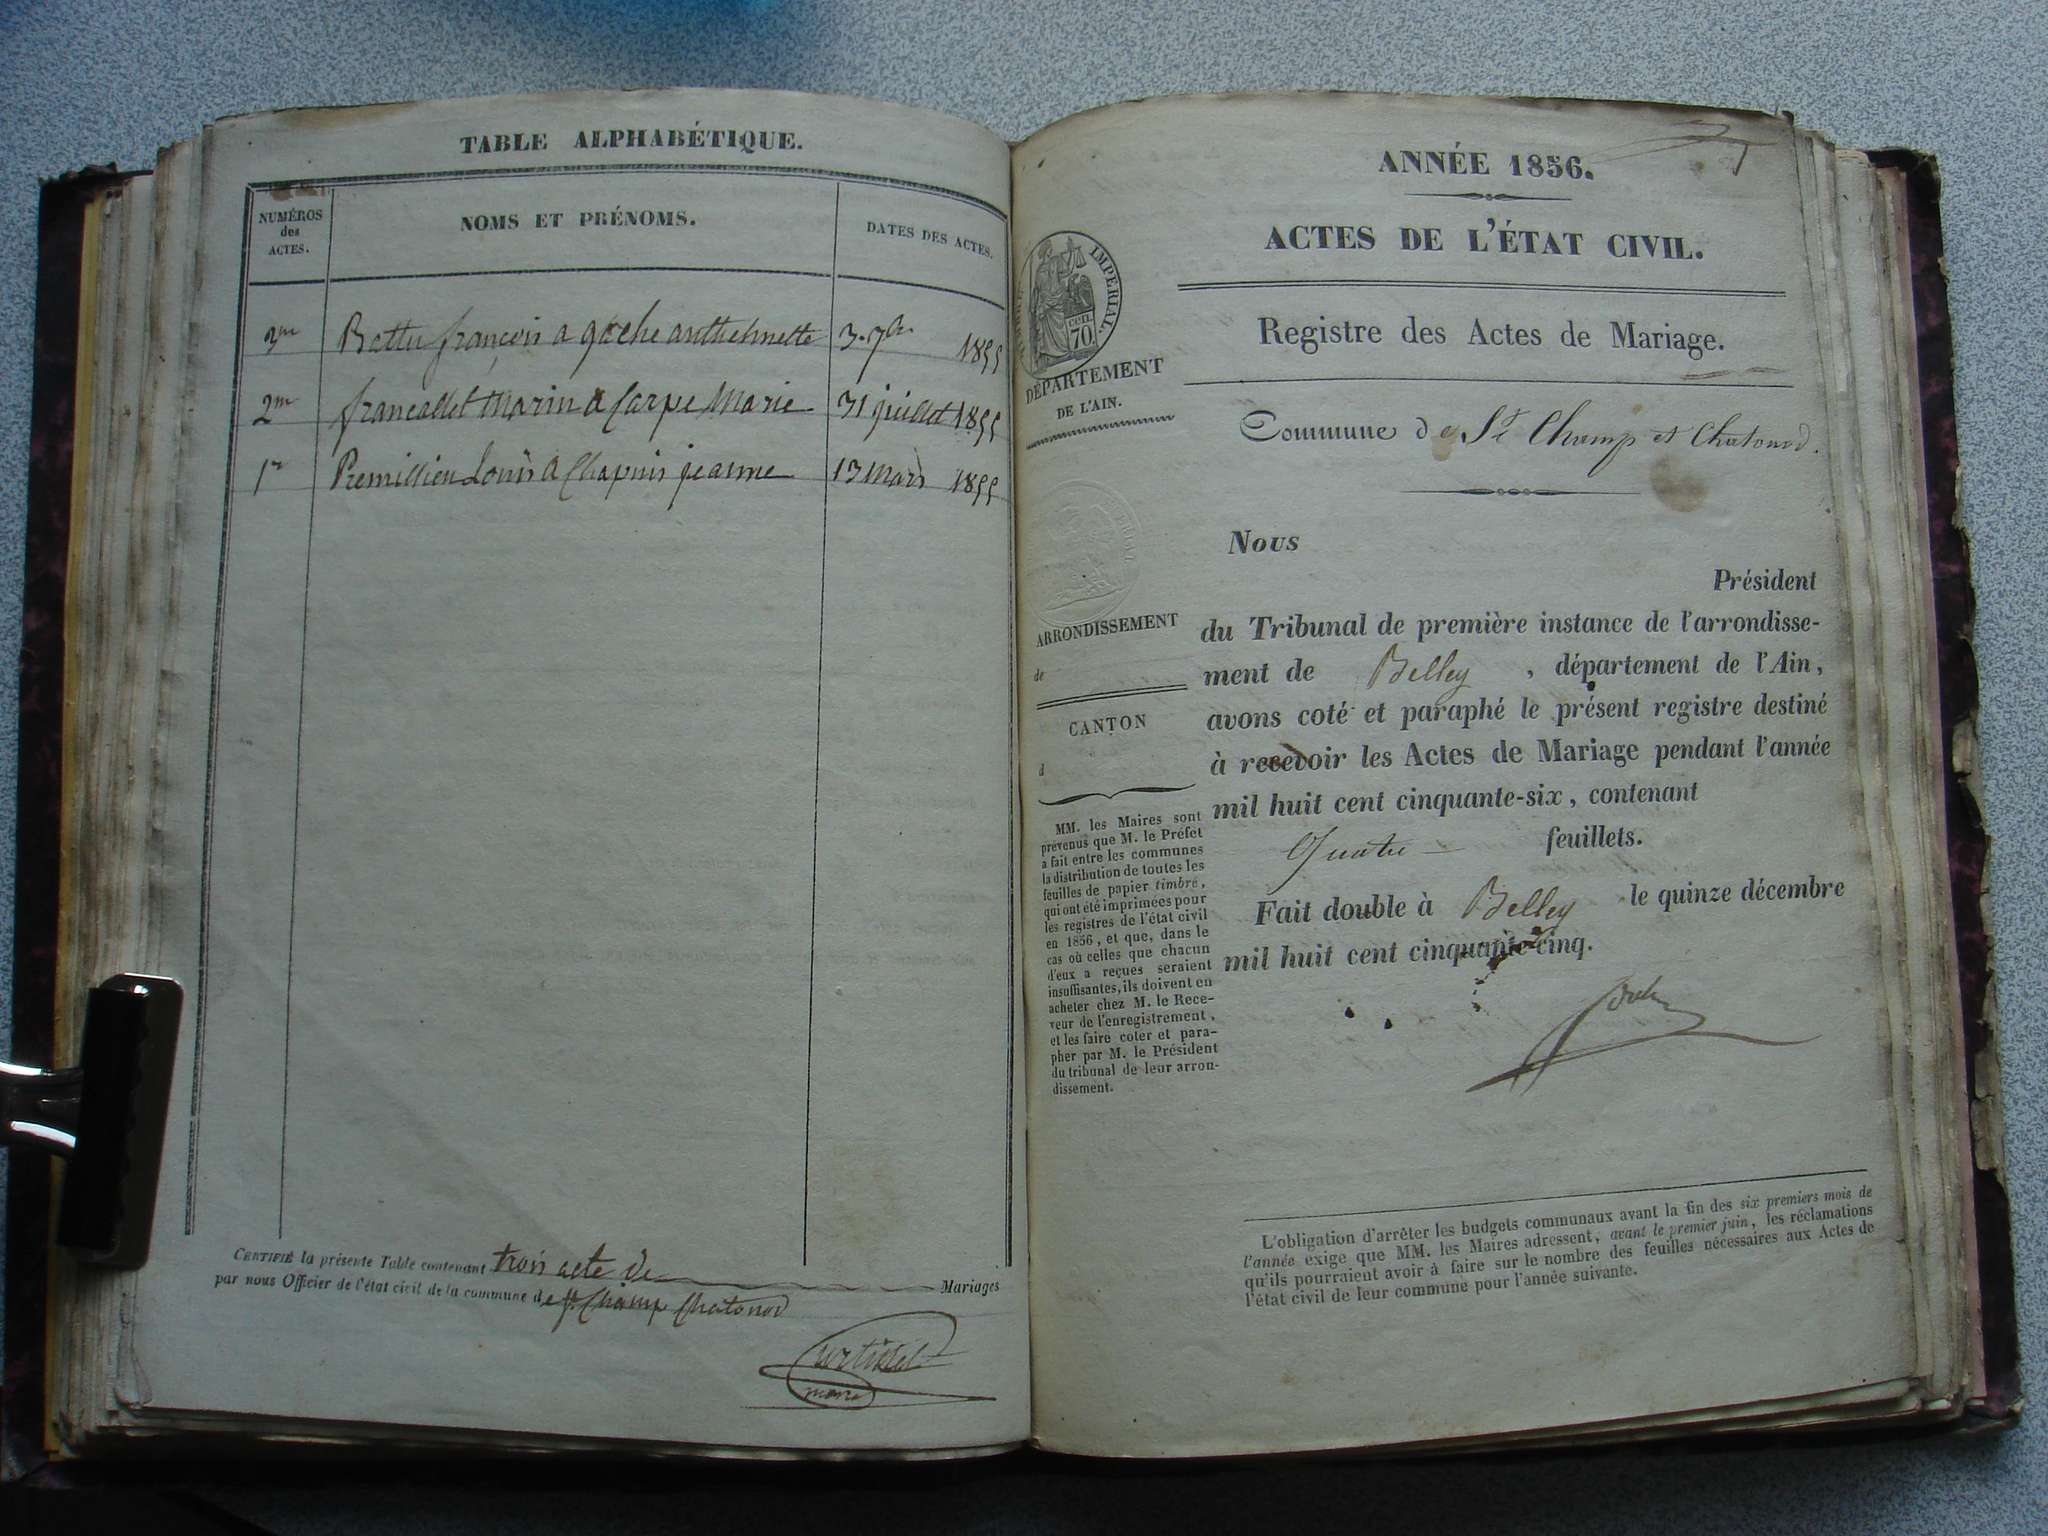 TABLE ALPHABÉTIQUE.
NUMÉROS
des
ACTES.
NOMS ET PRÉNOMS.
DATES DES ACTES.
3me Battu françois a gâche anthelmette 3. 7bre 1855
2me francallet Marin a Carpe Marie 31 juillet 1855
1er Premillieu Louis a Chapuis jeanne 13 Mars 1855
CERTIFIÉ la présente Table contenant trois acte de Mariages
par nous Officier de l'état civil de la commune de St. Champ Chatonod
maire
ANNÉE 1856.
ACTES DE L'ÉTAT CIVIL.
Registre des Actes de Mariage.
IMPERIAL.
CENT.
70
DÉPARTEMENT
DE L'AIN.
Commune de St Champ et Chatonod.
Nous
Président
du Tribunal de première instance de l'arrondisse-
ment de Belley, département de l'Ain,
avons coté et paraphé le présent registre destiné
à recevoir les Actes de Mariage pendant l'année
mil huit cent cinquante-six, contenant
Quatre feuillets.
Fait double à Belley le quinze décembre
mil huit cent cinquante-cinq.
ARRONDISSEMENT
de
CANTON
d
MM. les Maires sont
prévenus que M. le Préfet
a fait entre les communes
la distribution de toutes les
feuilles de papier timbré,
qui ont été imprimées pour
les registres de l'état civil
en 1856, et que, dans le
cas où celles que chacun
d'eux a reçues seraient
insuffisantes, ils doivent en
acheter chez M. le Rece-
veur de l'enregistrement,
et les faire coter et para-
pher par M. le Président
du tribunal de leur arron-
dissement.
L'obligation d'arrêter les budgets communaux avant la fin des six premiers mois de
l'année exige que MM. les Maires adressent, avant le premier juin, les réclamations
qu'ils pourraient avoir à faire sur le nombre des feuilles nécessaires aux Actes de
l'état civil de leur commune pour l'année suivante.